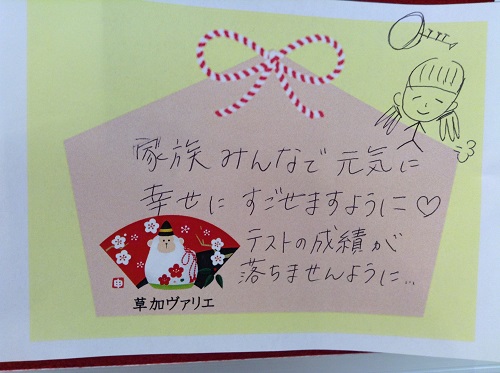 家族みんなで元気に
幸せにすごせますように♡
テストの成績が
落ちませんように…
申
草加ヴァリエ